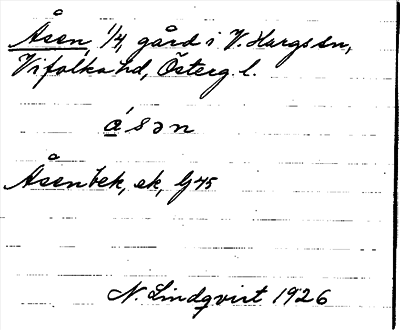 Åsen, 1/4, gård i V. Hargs sn,
Vifolka hd, Österg. l.
a̲´sən
Åsen bek, ek, Gj 45
N. Lindqvist 1926